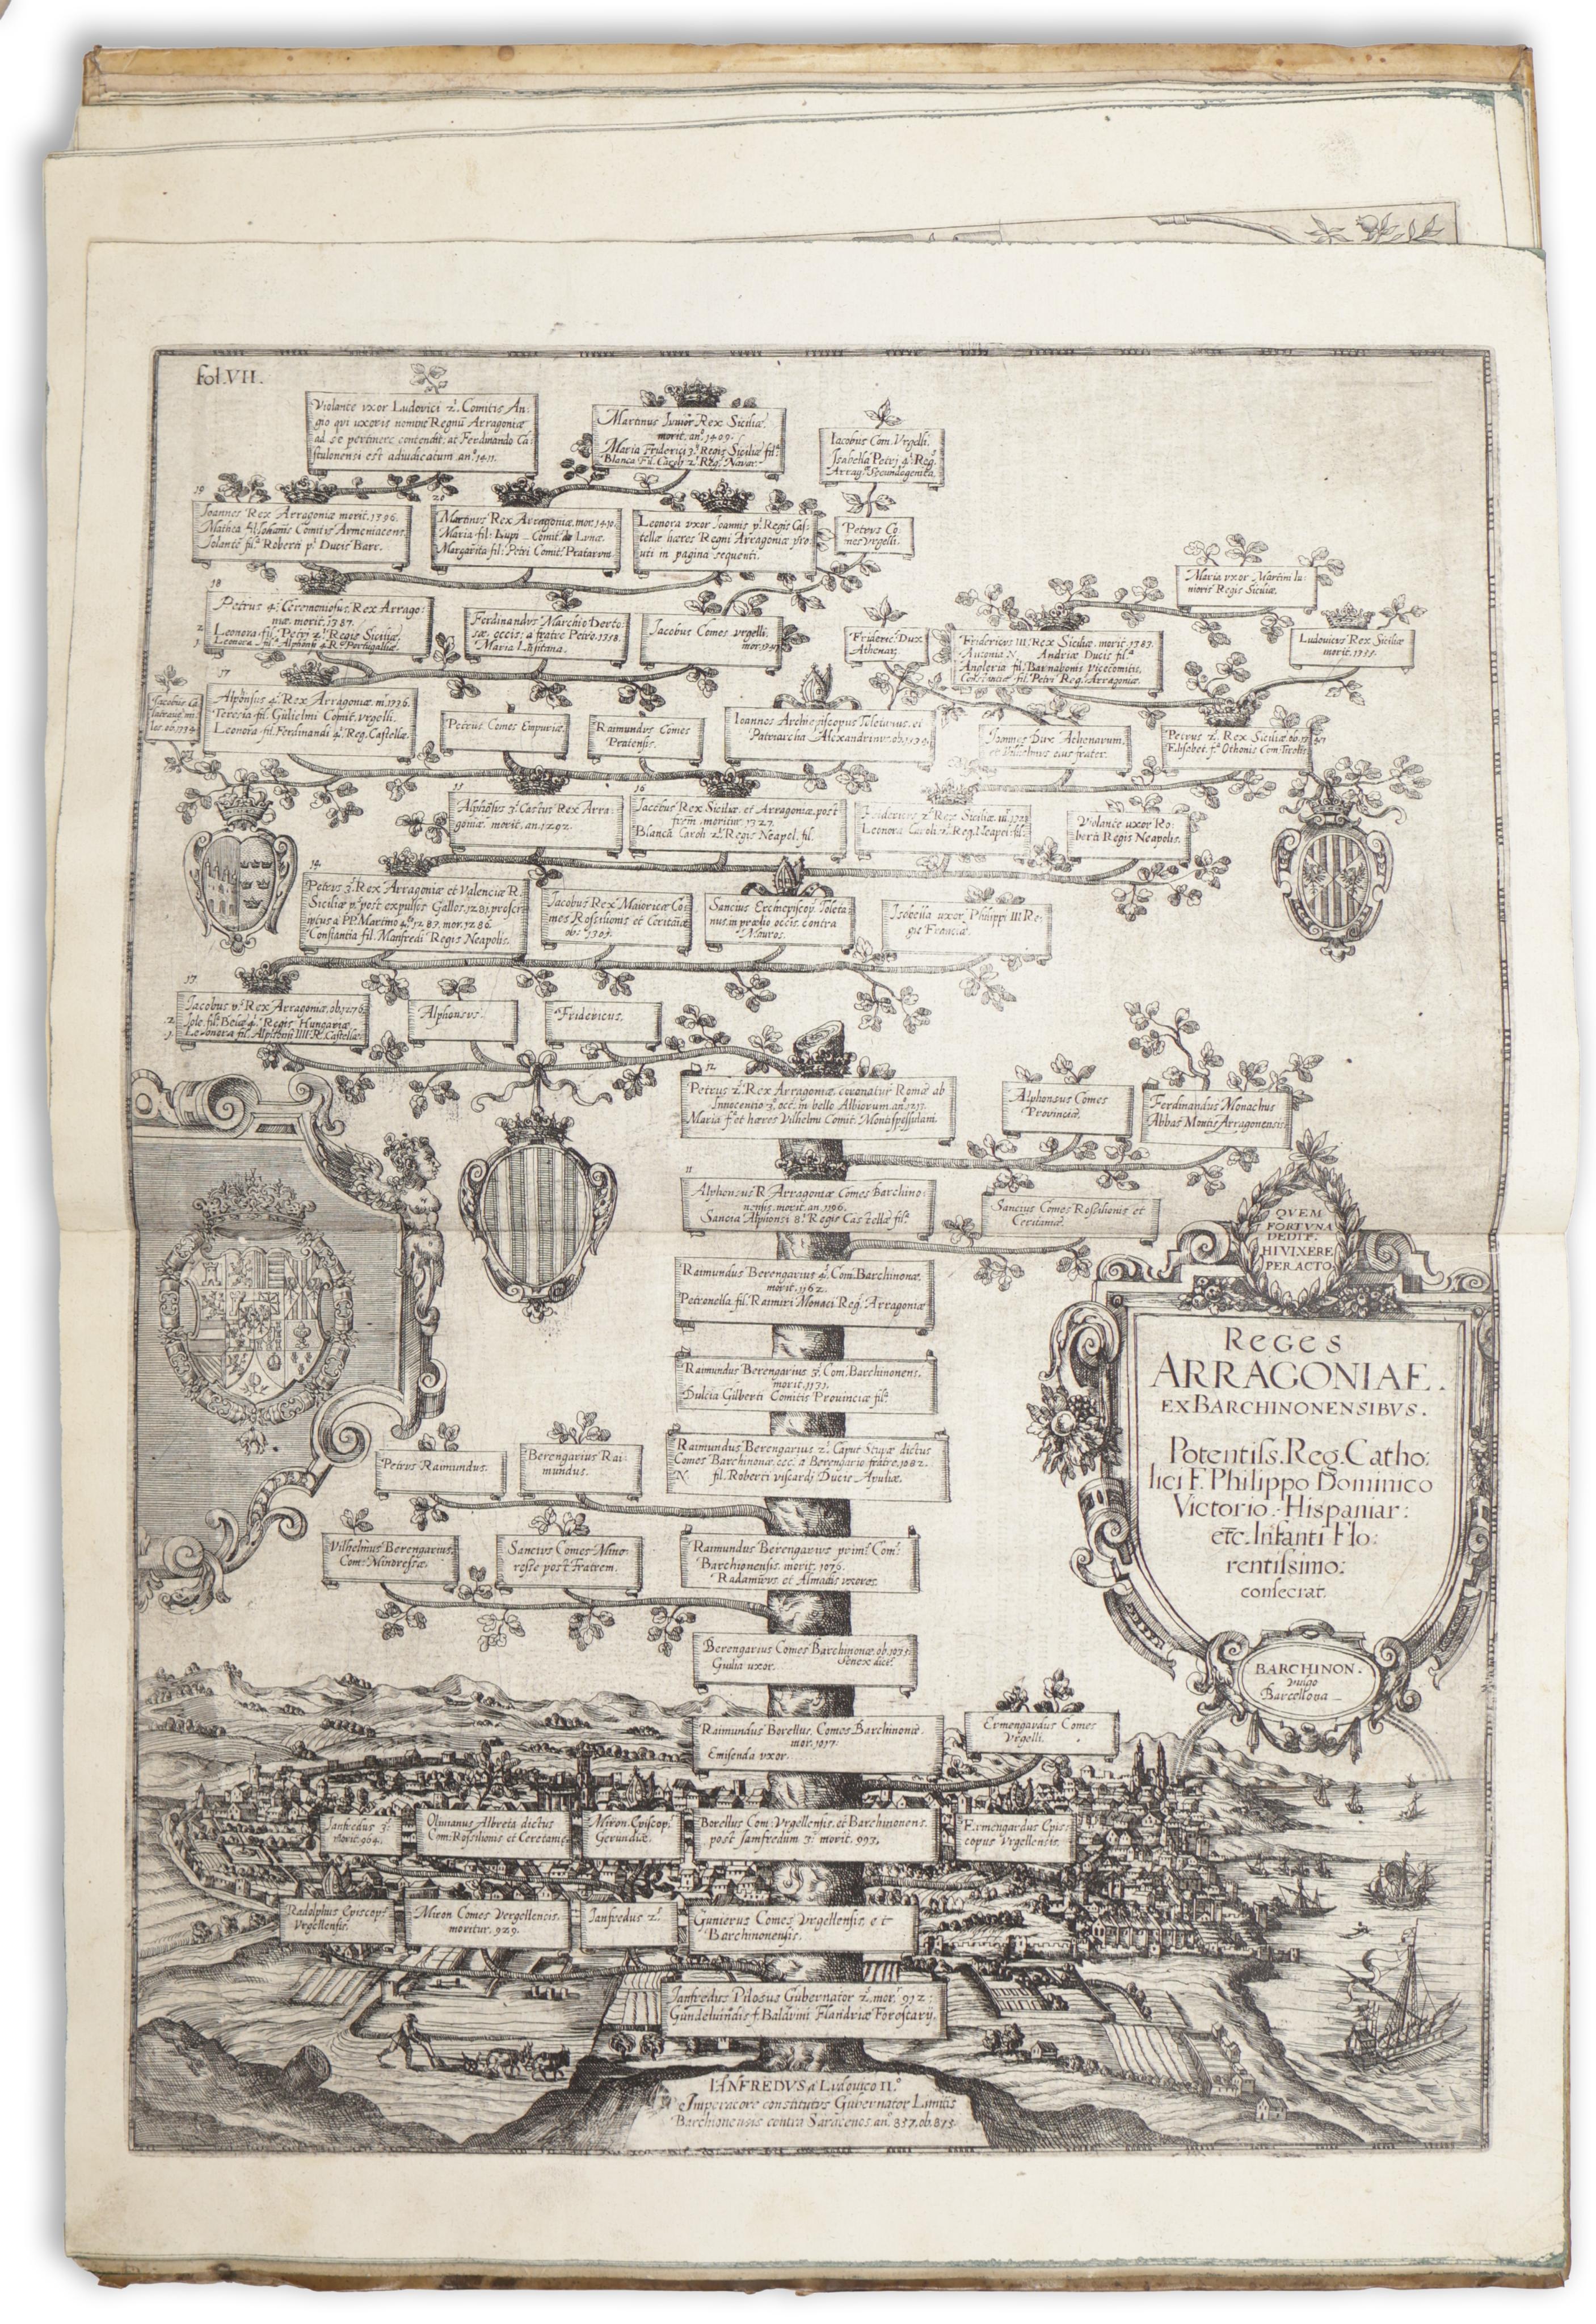 fol.VII.
Violante vxor Ludovici 2. Comitis An:
gio qui uxoris nomine Regnũ Arragoniæ
ad se pertinere contendit, at Ferdinando Ca:
stulonensi est adiudicatum an.º 1411.
Martinus Iunior Rex Siciliæ.
morit. an.º 1409.
Maria Friderici 3. Regis Siciliæ fil.ª
Blanca Fil. Caroli 2. Reg. Navar.
Iacobus Com. Vrgelli.
Isabella Petri 4. Reg.
Arrag. Secundogenita.
19
Ioannes Rex Arragoniæ morit. 1396.
Mathea fil. Iohanis Comitis Armeniacens.
Iolante fil.ª Roberti p.i Ducis Barr.
20
Martinus Rex Arragoniæ, mor. 1410.
Maria fil: Lupi Comit. de Lunæ.
Margarita fil: Petri Comit. Pratarum.
Leonora vxor Ioannis p.i Regis Cas:
tellæ hæres Regni Arragoniæ pro:
uti in pagina sequenti.
Petrus Co:
mes Vrgelli.
Maria vxor Martini Iu:
nioris Regis Siciliæ.
18
Petrus 4. Ceremoniosus, Rex Arrago:
niæ. morit. 1387.
2 Leonora fil. Petri 2. Regis Siciliæ,
1 Leonora fil.ª Alphonsi 4. R. Portugalliæ.
Ferdinandus Marchio Derto:
sæ, occis: a fratre Petro. 1358.
Maria Lusitana.
Iacobus Comes Vrgelli.
mor. 1347
Frideric. Dux
Athenar.
Fridericus III. Rex Siciliæ. morit. 1383.
Antonia N. Andriæ Ducis fil.ª
Angleria fil. Barnabonis Vicecomitis.
Constantia fil. Petri Reg. Arragoniæ.
Ludovicus Rex Siciliæ
morit. 1355.
17
Iacobus Ca
Alphonsus 4. Rex Arragoniæ. m. 1336.
Teresia fil. Gulielmi Comit. Vrgelli.
Leonora fil. Ferdinandi 4. Reg. Castellæ.
Petrus Comes Empuriæ.
Raimundus Comes
Pratensis.
Ioannes Archiepiscopus Toletanus, et
Patriarcha Alexandrinus, ob. 1334
Ioannes Dux Athenarum,
et Vilhelmus eius frater.
Petrus 2. Rex Siciliæ. ob. 1342
Elisabet. f.ª Othonis Com. Tirolis
15
Alphosus 3. Castus Rex Arra:
goniæ. morit. an. 1292.
16
Iacobus Rex Siciliæ, et Arragoniæ, post
frẽm, moritur. 1327.
Blanca Caroli 2. Regis Neapel. fil.
Fridericus 2. Rex Siciliæ.
Leonora Caroli 2. Reg. Neapel. fil.
Violante uxor Ro:
berti Regis Neapolis.
14
Petrus 3. Rex Arragoniæ et Valenciæ R.
Siciliæ p.º post expulsos Gallos, 1281, proscr:
iptus à PP. Martino 4.to 1283. mor. 1286.
Constantia fil. Manfredi Regis Neapolis.
Iacobus Rex Maioricæ Co:
mes Rossilionis et Ceritaniæ
ob. 1305.
Sancius Erchiepiscop. Toleta:
nus, in prœlio occis. contra
Mauros.
Isabella uxor Philippi III Re:
gis Franciæ.
Iacobus p.s Rex Arragoniæ. ob. 1276.
2 Iole fil. Belæ 4. Regis Hungariæ
1 Leonora fil. Alphonsi IIII R. Castellæ.
Alphonsus.
Fridericus.
12
Petrus 2. Rex Arragoniæ, coronatur Romæ ab
Innocentio 3. occ. in bello Albiorum. an.
Maria f.ª et hæres Vilhelmi Comit. Montispessulani.
Alphonsus Comes
Prouinciæ.
Ferdinandus Monachus
Abbas Montis Arragonensis.
11
Alphonsus R. Arragoniæ Comes Barchino:
nensis. morit. an. 1196.
Sancia Alphonsi 8.i Regis Castellæ fil.ª
Sanctus Comes Rossilionis et
Ceritaniæ.
QVEM
FORTVNA
DEDIT.
HI VIXERE
PERACTO
Raimundus Berengarius 4. Com. Barchinonæ,
morit. 1162.
Petronella fil. Raimiri Monaci Reg. Arragoniæ
Raimundus Berengarius 3. Com. Barchinonens.
morit. 1131.
Dulcia Gilberti Comitis Prouinciæ fil.ª
Reges
ARRAGONIAE.
EX BARCHINONENSIBVS.
Potentiss. Reg. Catho:
lici F. Philippo Dominico
Victorio. Hispaniar:
etc. Infanti Flo:
rentissimo:
consecrat.
Petrus Raimundus.
Berengarius Rai:
mundus.
Raimundus Berengarius 2. Caput Stupæ dictus
Comes Barchinonæ, occ. a Berengario fratre, 1082.
N. fil. Roberti viscardi Ducis Apuliæ.
Vilhelmus Berengarius.
Com. Minoressæ.
Sanctus Comes Mino:
resse post Fratrem.
Raimundus Berengarius prim. Com:
Barchionensis. morit. 1076.
Radamirus et Almadis vxores.
Berengarius Comes Barchinonæ. ob. 1035.
Senex dict.
Guilia uxor.
BARCHINON.
vulgo
Barcellona
Raimundus Borellus, Comes Barchinoniæ.
mor. 1017.
Emisenda vxor.
Ermengardus Comes
Vrgelli.
Ianfredus 3.
morit. 964.
Oliuianus Albreta dictus
Com: Rossilionis et Ceretaniæ.
Miron Episcop.
Gerundiæ.
Borellus Com: Vrgellensis, et Barchinonens.
post Ianfredum 3. morit. 993.
Ermengardus Epis:
copus Vrgellensis.
Radolphus Episcop.
Vrgellensis.
Miron Comes Vergellencis.
moritur. 929.
Ianfredus 2.
Gunierus Comes Vrgellensis, et
Barchinonensis.
Ianfredus Pilosus Gubernator 2. mor. 912:
Gundeluindis f. Balduini Flandriæ Forestarij.
IANFREDVS a Ludouico II.º
Imperatore constitutus Gubernator Limitis
Barchionensis contra Saracenos. an. 857. ob. 875.